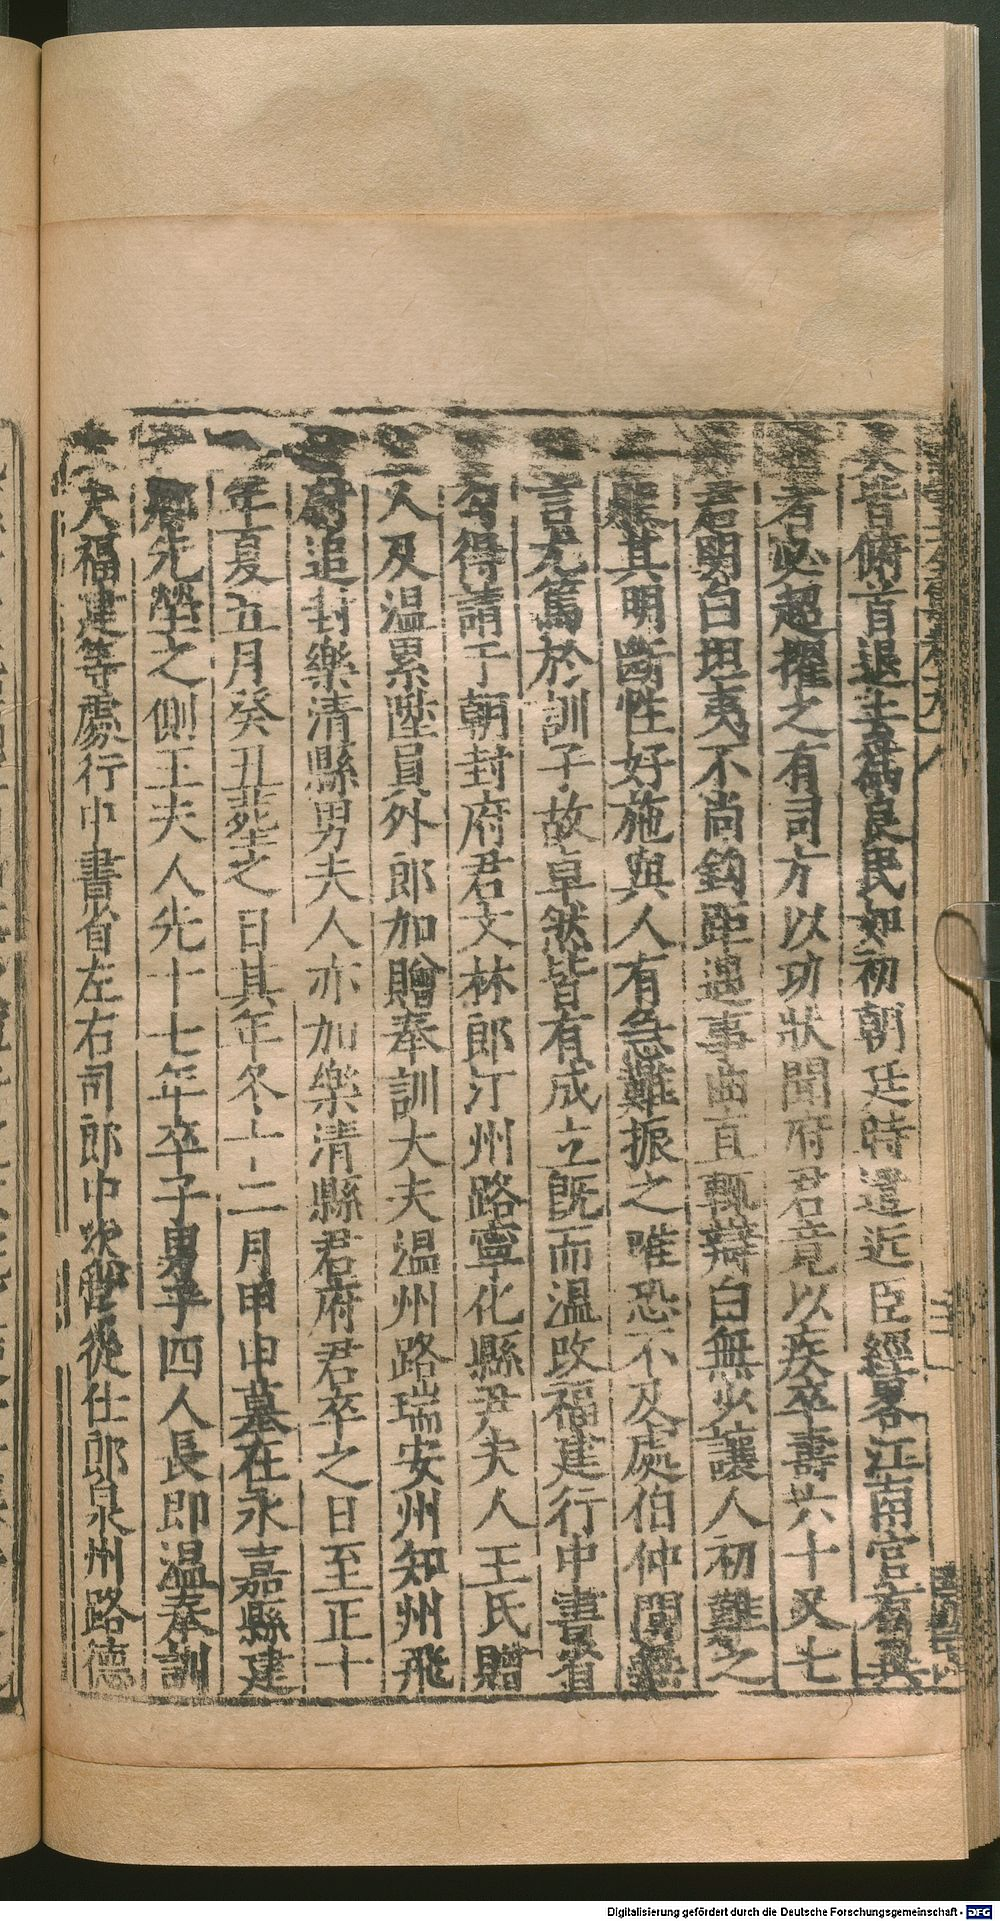 皆俯首退去爲良民如初朝廷時遣近臣經畧江南官有異
者必超擢之有司方以功狀聞府君竟以疾卒壽六十又七
君明白坦夷不尚鈎距遇事曲直輒辯白無少讓人初難之
其明斷性好施與人有急難振之唯恐不及處伯仲間
言尤篤於訓子故卓然皆有成立既而溫改福建行中書省
得請于朝封府君文林郎汀州路寧化縣尹夫人王氏贈
人及温累陞員外郎加贈奉訓大夫温州路瑞安州知州飛
尉追封樂清縣男夫人亦加樂清縣君府君卒之日至正十
年夏五月癸丑葬之日其年冬十二月甲申墓在永嘉縣建
鄉先塋之側王夫人先十七年卒子男子四人長即温奉訓
大夫福建等處行中書省左右司郎中次從仕郎泉州路德
Digitalisierung gefördert durch die Deutsche Forschungsgemeinschaft - DFG